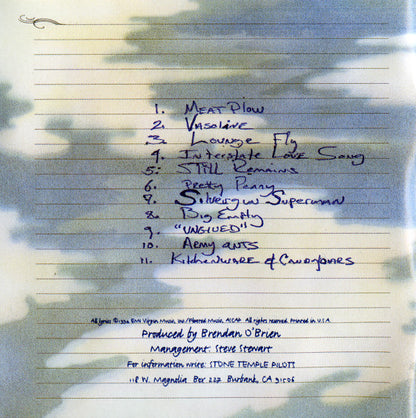 1. MEAT PLOW
2. VASOLINE
3. LOUNGE Fly
4. Interstate Love Song
5. STILL Remains
6. Pretty Penny
7. Silvergun Superman
8. Big Empty
9. "UNGLUED"
10. Army ants
11. KITCHENWARE & CANDYBARS
All lyrics © 1994 EMI Virgin Music, Inc/Floated Music, ASCAP. All rights reserved. Printed in U.S.A.
Produced by Brendan O'Brien
Management: Steve Stewart
For information write: STONE TEMPLE PILOTS
118 W. Magnolia Box 227 Burbank, CA 91506